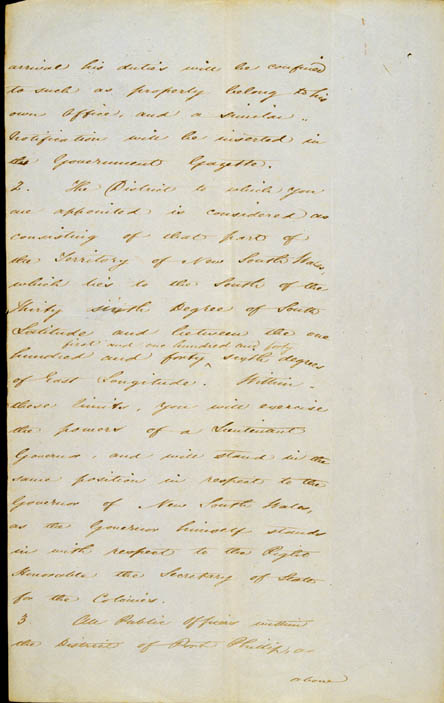 arrival his duties will be confined
to such as properly belong to his
own Office, and a similar
Notification will be inserted in
the Government Gazette.
2. The District to which you
are appointed is considered as
consisting of that part of
the Territory of New South Wales,
which lies to the South of the
Thirty sixth Degree of South
Latitude and between the one
first and one hundred and forty
hundred and forty ^ sixth degrees
of East Longitude. Within
those limits, you will exercise
the powers of a Lieutenant
Governor, and will stand in the
same position in respect to the
Governor of New South Wales,
as the Governor himself stands
in with respect to the Right
Honorable the Secretary of State
for the Colonies.
3 All Public Officers within
the District of Port Phillip,
above